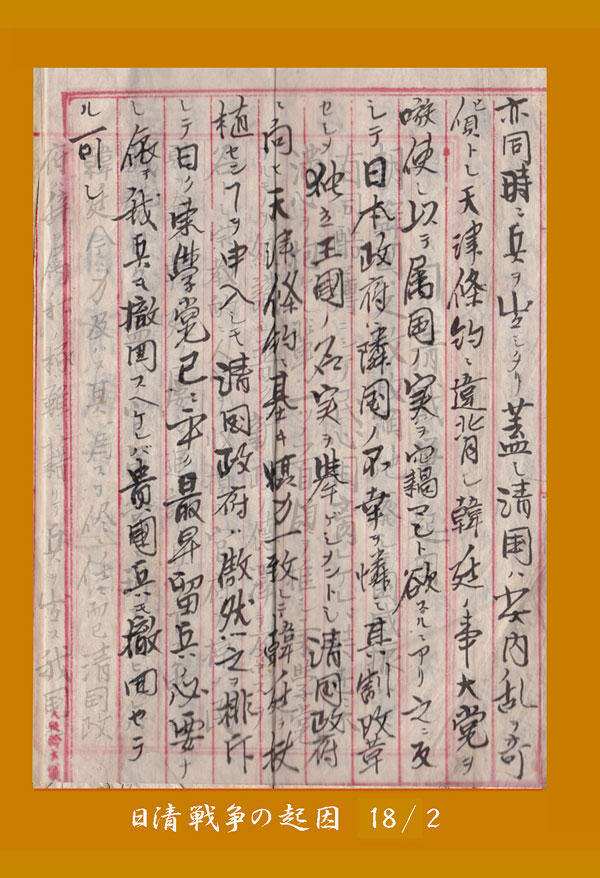 亦同時ニ兵ヲ出シタリ蓋シ清国ハ其内乱ヲ奇
貨トシ天津條約ニ違背シ韓廷ノ事大党ヲ
嗾使シ以テ属国ノ実ヲ欲スルニアリ之ニ反
シテ日本政府ハ隣国ノ不幸ヲ憐ミ其割改革
セシメ独立王国ノ名実ヲ挙ゲシメントシ清国政府
ニ向ヒ天津條約ニ基キ協力一致シテ韓廷ノ扶
植セン ヲ申入レシモ清国政府ハ傲然之ヲ排斥
シテ曰ク東学党已ニ平ク最早留兵ノ必要ナ
シ依テ我兵モ撤回スヘケレバ貴国兵モ撤回セラ
ル可シ
日清戦争の起因 18/2